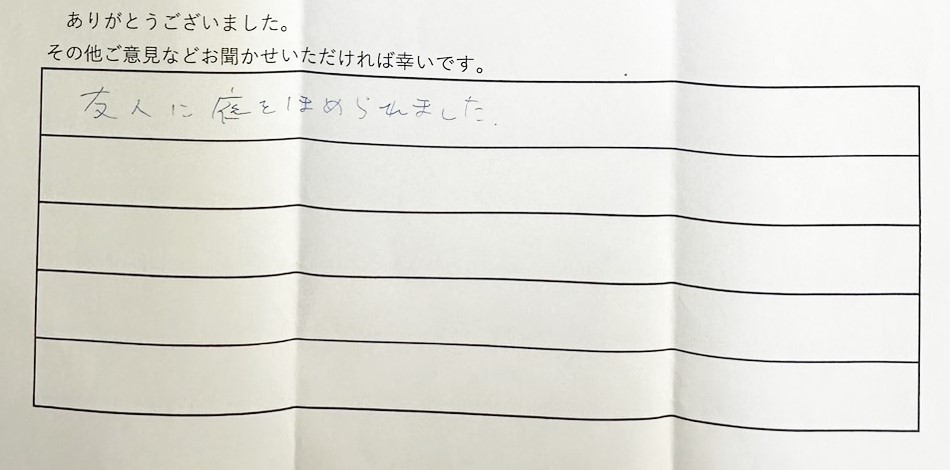 ありがとうございました。
その他ご意見などお聞かせいただければ幸いです。
友人に庭をほめられました.